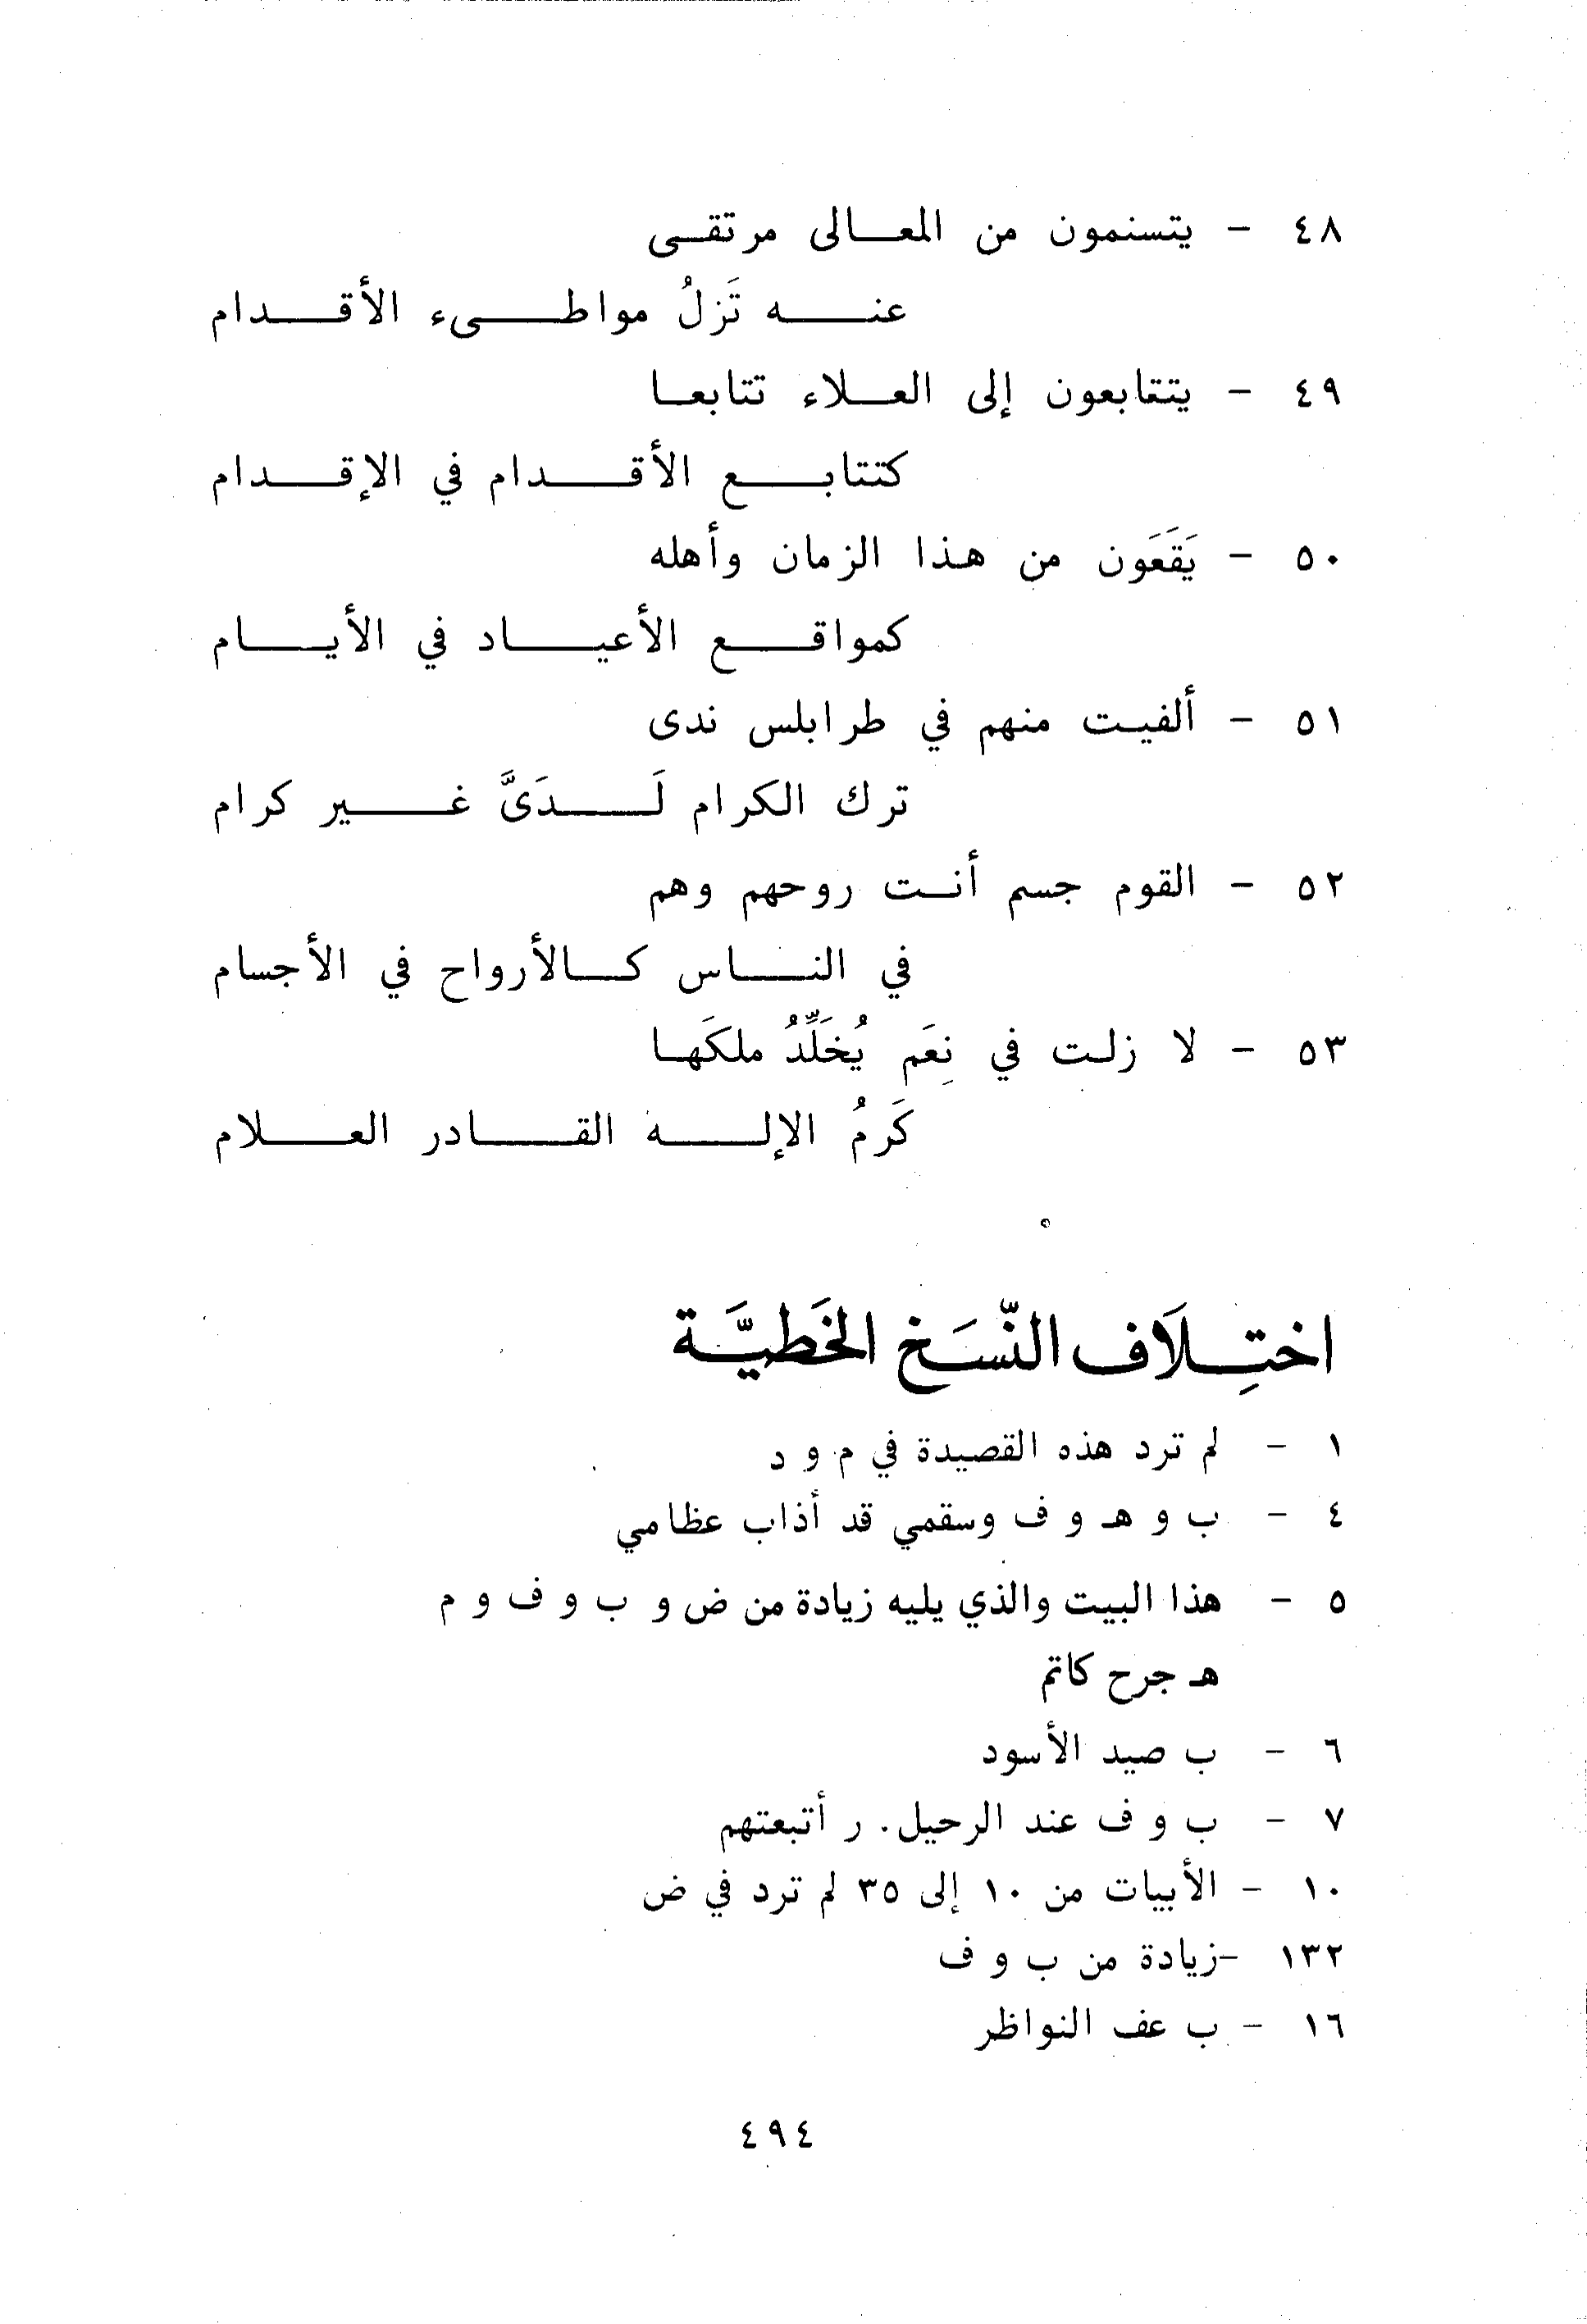 ٤٨ - يتسنمون من المعالى مرتقى
عنه تَزلُ مواطىء الأقدام
٤٩ - يتتابعون إلى العلاء تتابعا
كتتابع الأقدام في الإقدام
٥٠ - يَقَعَون من هذا الزمان وأهله
كمواقع الأعياد في الأيام
٥١ - ألفيت منهم في طرابلس ندى
ترك الكرام لَدَىَّ غير كرام
٥٢ - القوم جسم أنت روحهم وهم
في الناس كالأرواح في الأجسام
٥٣ - لا زلت في نِعَم يُخَلِّدُ ملكَها
كَرمُ الإله القادر العلام
اختِلَاف النّسَخ الخَطيَّة
١ - لم ترد هذه القصيدة في م و د
٤ - ب و هـ و ف وسقمي قد أذاب عظامي
٥ - هذا البيت والذي يليه زيادة من ض و ب و ف و م
هـ جرح كاتم
٦ - ب صيد الأسود
٧ - ب و ف عند الرحيل. ر أتبعتهم
١٠ - الأبيات من ١٠ إلى ٣٥ لم ترد في ض
١٣٢ -زيادة من ب و ف
١٦ - ب عف النواظر
٤٩٤